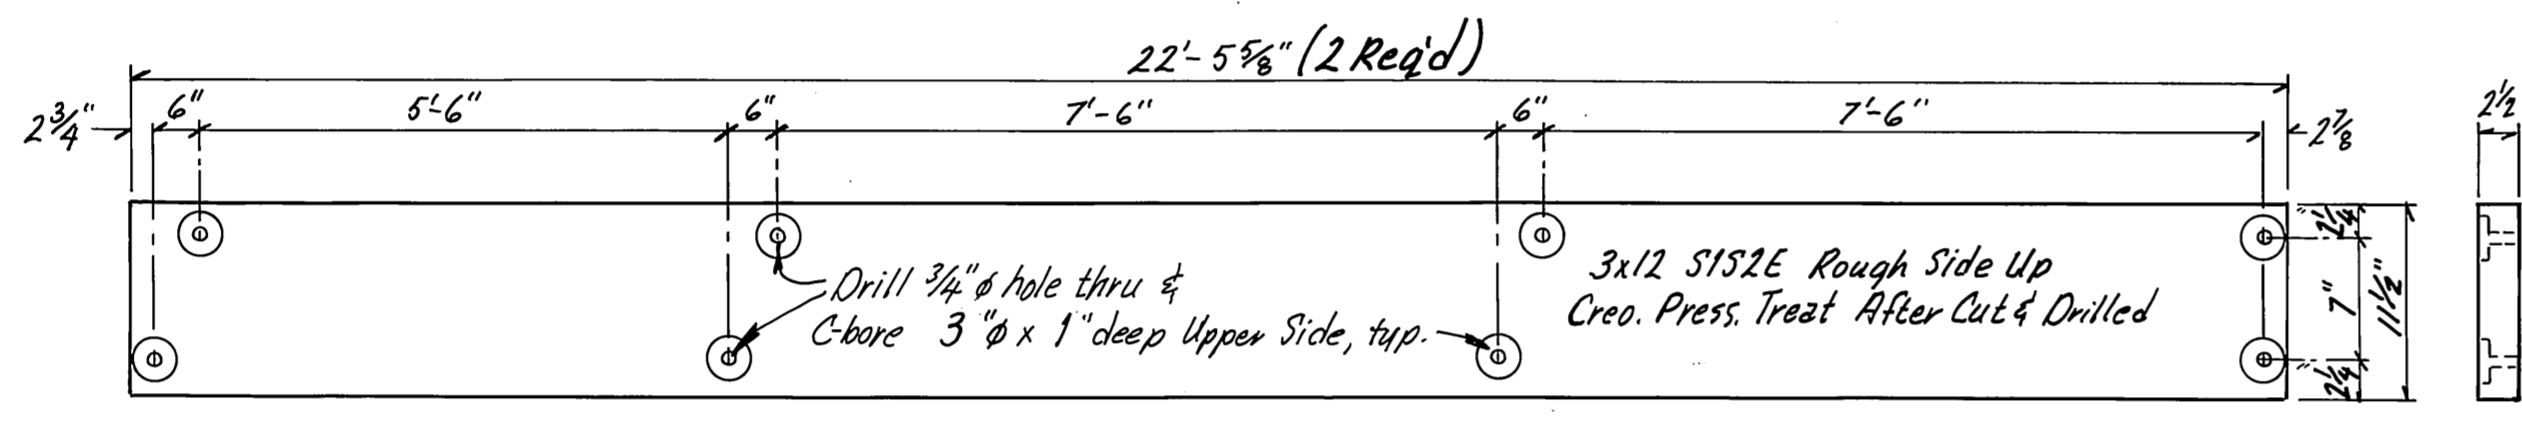 22'-5 5/8" (2 Req'd)
2 3/4" 6" 5'-6" 6" 7'-6" 6" 7'-6" 2 7/8 2 1/2
Drill 3/4"ø hole thru &
C-bore 3"ø x 1" deep Upper Side, typ.
3x12 S1S2E Rough Side Up
Creo. Press. Treat After Cut & Drilled
2 1/4"
7"
11 1/2"
2 1/4"